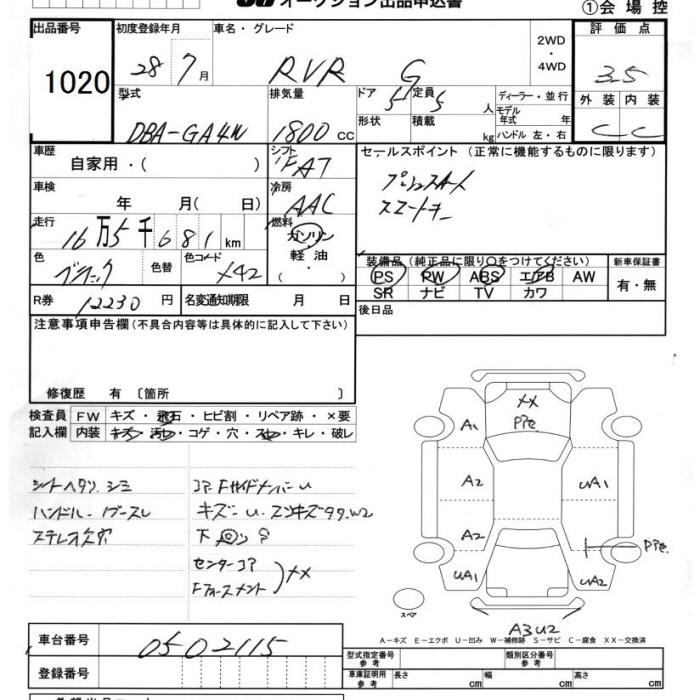 オークション出品申込書 ①会場控
出品番号 初度登録年月 車名・グレード 2WD・4WD 評価点
1020 28 7月 RVR G 3.5
型式 排気量 ドア 定員 ディーラー・並行 外装 内装
DBA-GA4W 1800 CC 5 5 人 モデル年式 年 C C
形状 積載 kg ハンドル 左・右
車歴 シフト セールスポイント (正常に機能するものに限ります)
自家用・( ) FAT
車検 冷房
年 月( 日) AAC
走行 燃料
16万5千681km ガソリン・軽油
( ・ )
色 色替 色コード 装備品(純正品に限り○をつけてください) 新車保証書
ブラック X42 PS PW ABS エアB AW 有・無
SR ナビ TV カワ
R券 12230円 名変通知期限 月 日 後日品
注意事項申告欄(不具合内容等は具体的に記入して下さい)
修復歴 有 〔箇所 〕
検査員 FW キズ・飛石・ヒビ割・リペア跡・×要
記入欄 内装 キズ・汚レ・コゲ・穴・スレ・キレ・破レ
シートヘタリ、シミ
ハンドル
ステレオ欠品
コアFサイドメンバーU
センターコア
XX
A1
A2 UA1
A2
UA1 UA2
スペア
A3U2
A-キズ E-エクボ U-凹み W-補修跡 S-サビ C-腐食 XX-交換済
車台番号 0502115
登録番号
型式指定番号 参考 類別区分番号 参考
車庫証明用 参考 長さ cm 幅 cm 高さ cm